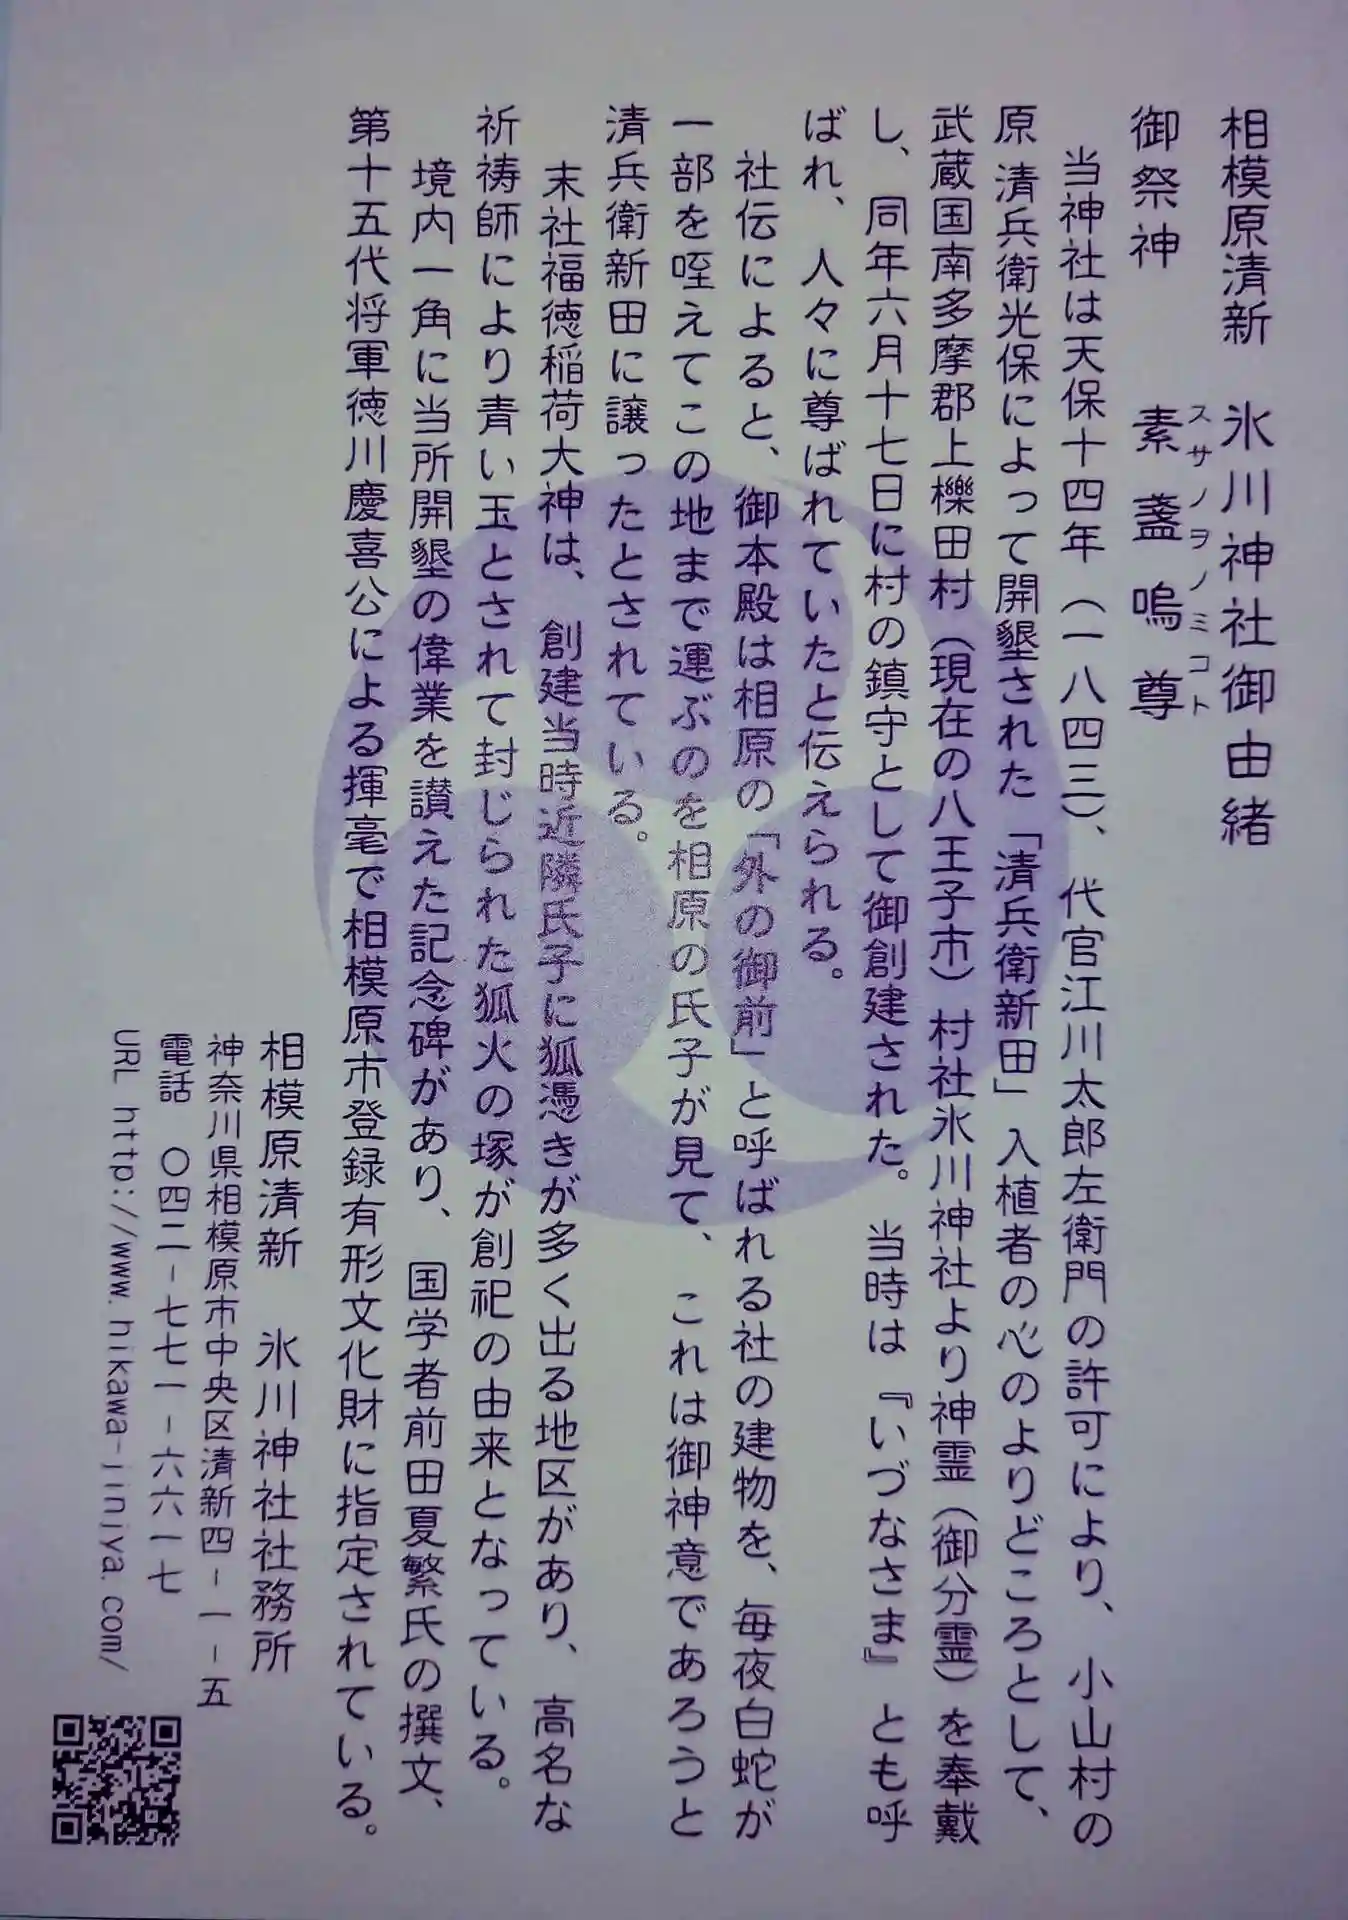 相模原清新　氷川神社御由緒
御祭神　素盞嗚尊
スサノヲノミコト
当神社は天保十四年（一八四三）、代官江川太郎左衛門の許可により、小山村の
原 清兵衛光保によって開墾された「清兵衛新田」入植者の心のよりどころとして、
武蔵国南多摩郡上櫟田村（現在の八王子市）村社氷川神社より神霊（御分霊）を奉戴
し、同年六月十七日に村の鎮守として御創建された。当時は『いづなさま』とも呼
ばれ、人々に尊ばれていたと伝えられる。
社伝によると、御本殿は相原の「外の御前」と呼ばれる社の建物を、毎夜白蛇が
一部を咥えてこの地まで運ぶのを相原の氏子が見て、これは御神意であろうと
清兵衛新田に譲ったとされている。
末社福徳稲荷大神は、創建当時近隣氏子に狐憑きが多く出る地区があり、高名な
祈祷師により青い玉とされて封じられた狐火の塚が創祀の由来となっている。
境内一角に当所開墾の偉業を讃えた記念碑があり、国学者前田夏繁氏の撰文、
第十五代将軍徳川慶喜公による揮毫で相模原市登録有形文化財に指定されている。
相模原清新　氷川神社社務所
神奈川県相模原市中央区清新四－一－五
電話　〇四二－七七一－六六一七
URL http://www.hikawa-jinjya.com/